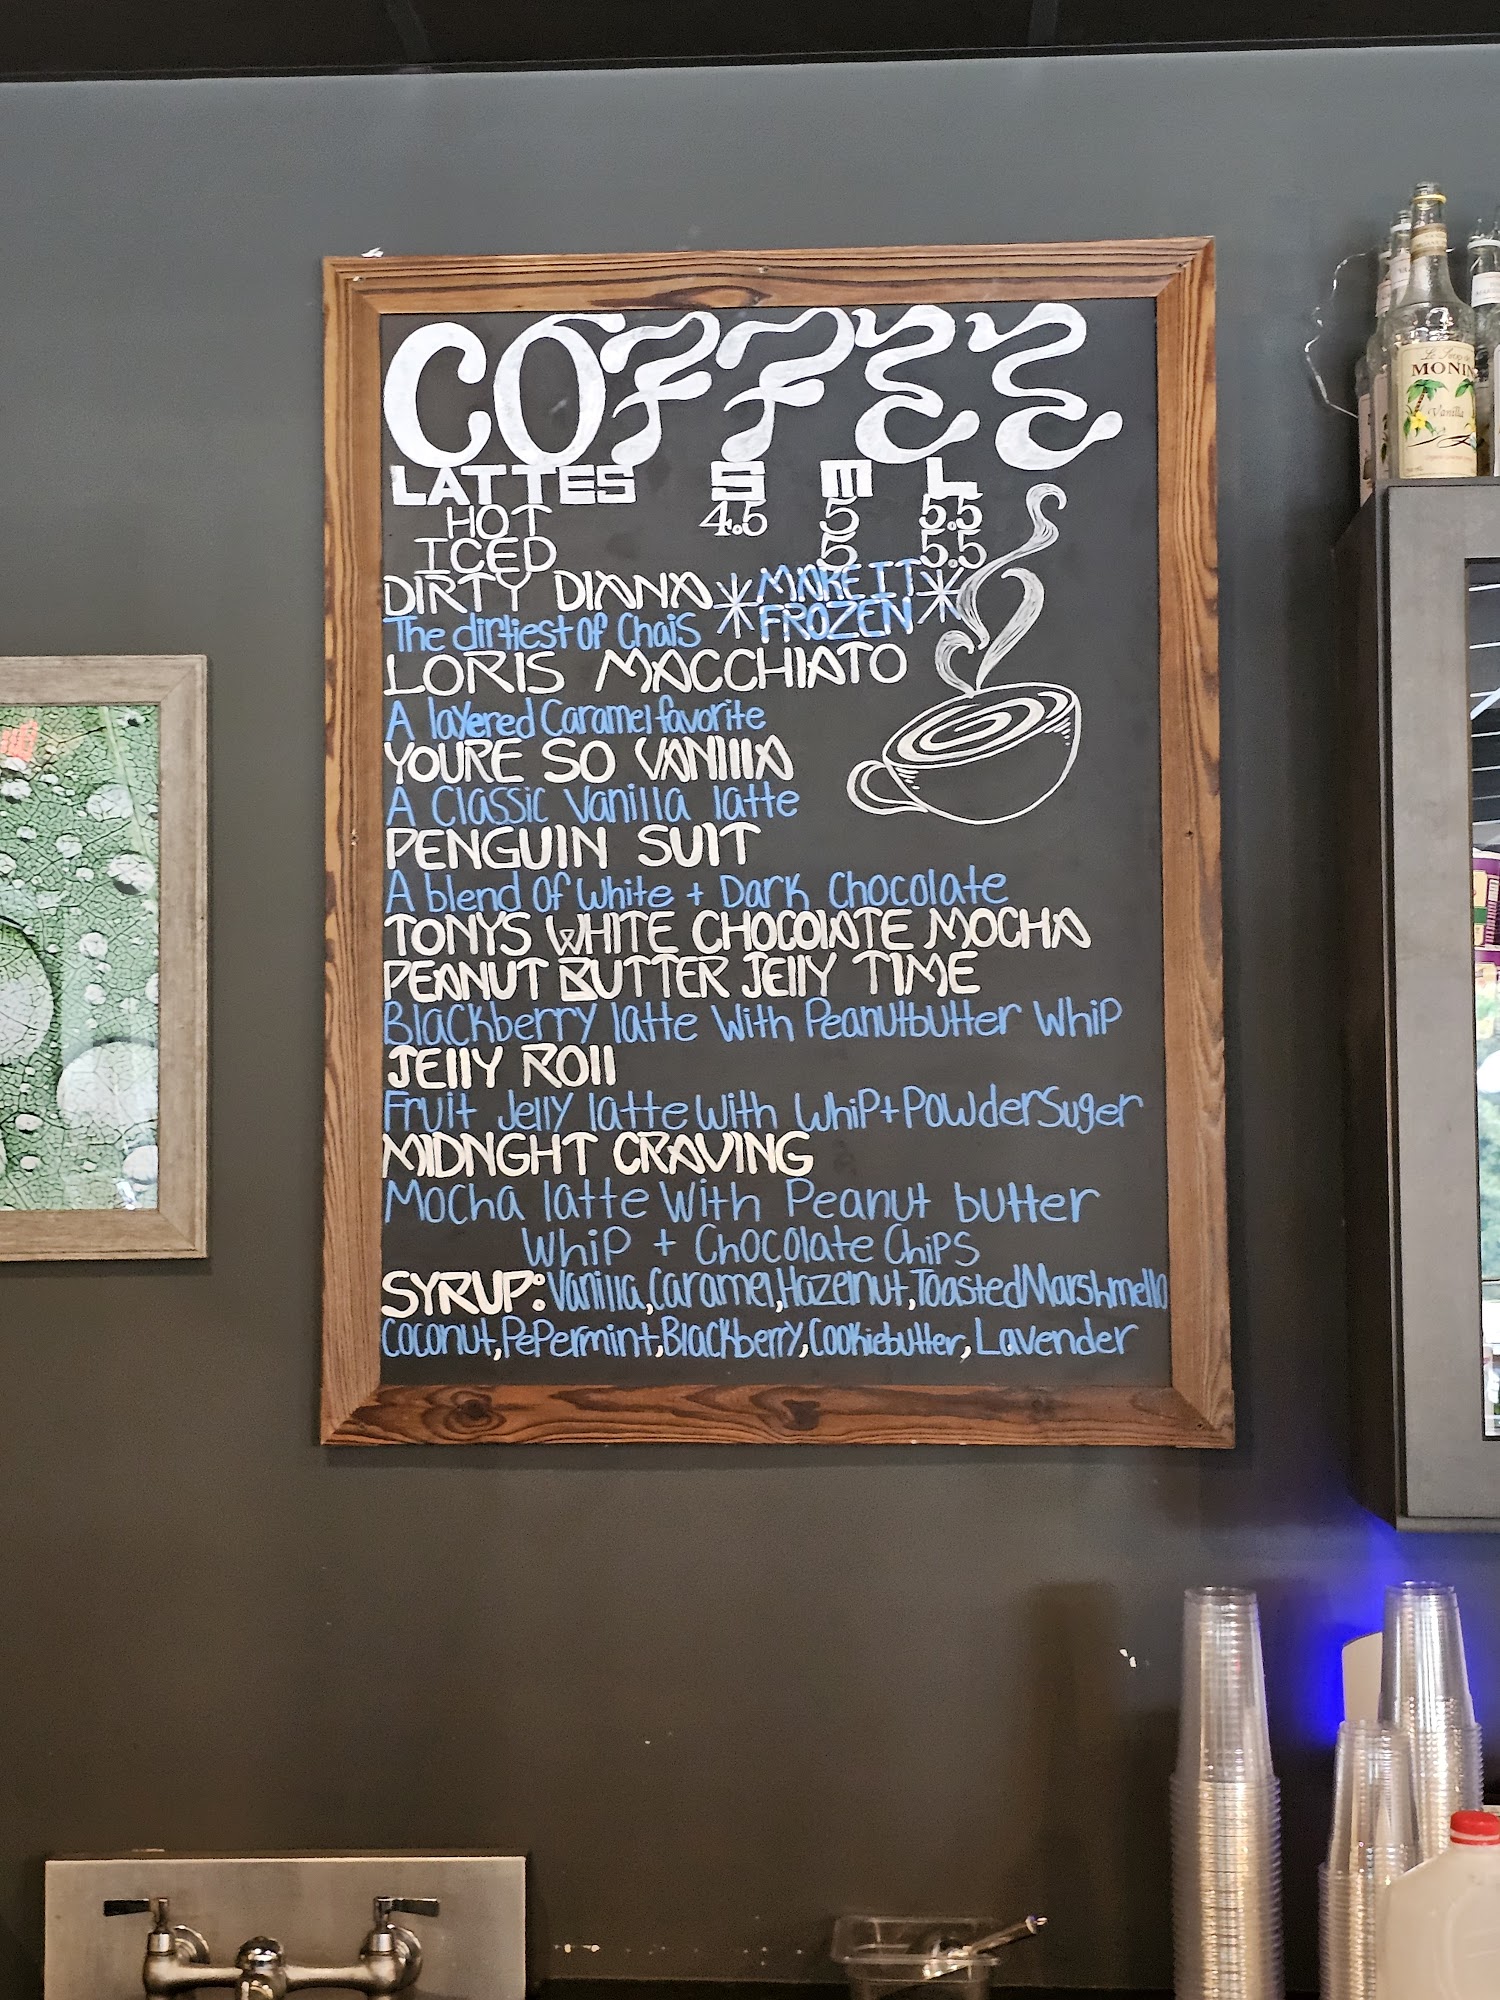 COFFEE
LATTES S M L
HOT 4.5 5 5.5
ICED 5 5.5
DIRTY DIANA *MAKE IT FROZEN*
The dirtiest of Chais
LORIS MACCHIATO
A layered Caramel favorite
YOURE SO VANIllA
A Classic Vanilla latte
PENGUIN SUIT
A blend of White + Dark Chocolate
TONYS WHITE CHOCOlATE MOCHA
PEANUT BUTTER JEllY TIME
Blackberry latte With Peanutbutter Whip
JEllY ROll
Fruit Jelly latte With Whip+PowderSuger
MIDNGHT CRAVING
Mocha latte With Peanut butter
Whip + Chocolate Chips
SYRUP: Vanilla, Caramel, Hazelnut, Toasted Marshmello
Coconut, Pepermint, Blackberry, Cookiebutter, Lavender
MONIN
Vanilla